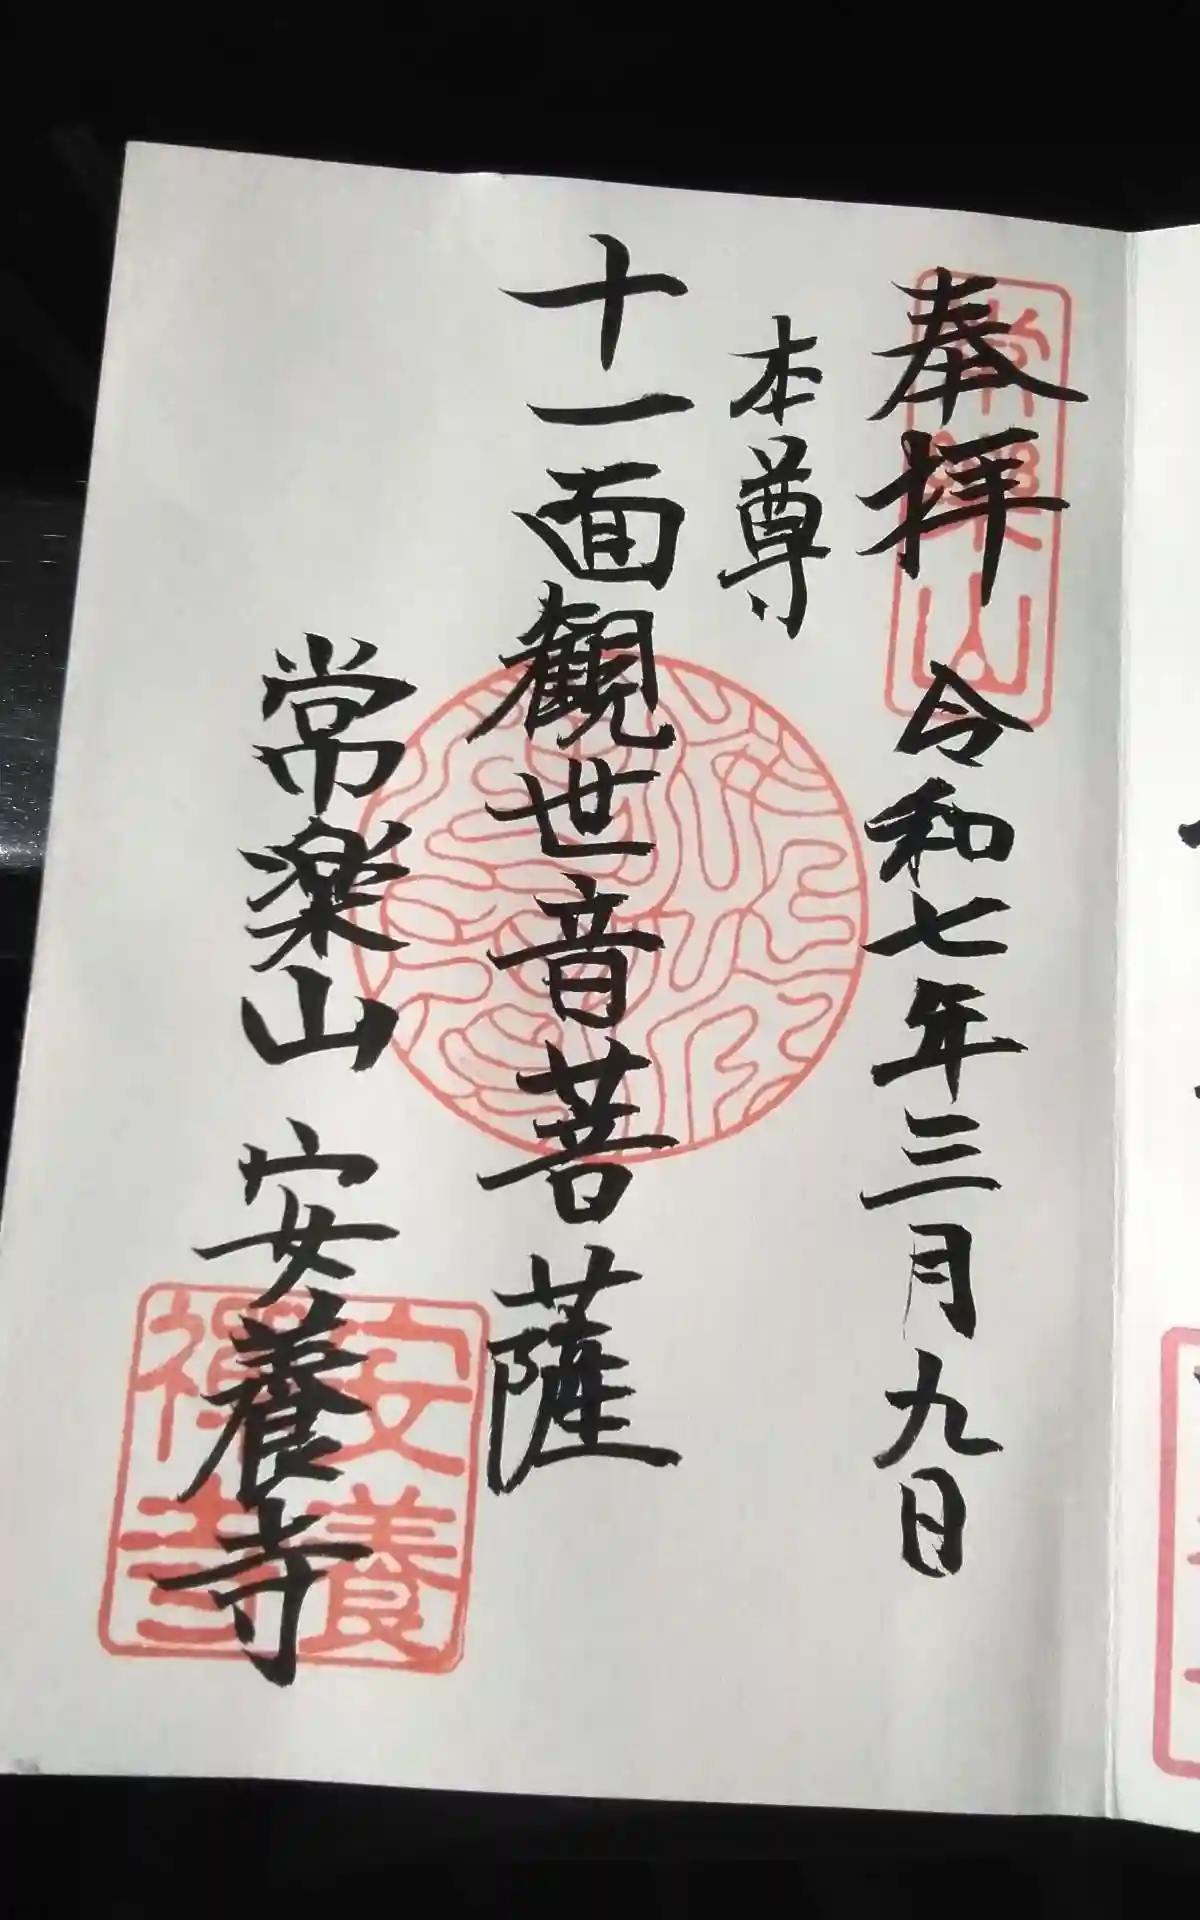 奉拝 令和七年三月九日
本尊
十一面観世音菩薩
常楽山 安養寺
常樂山
安養禅寺